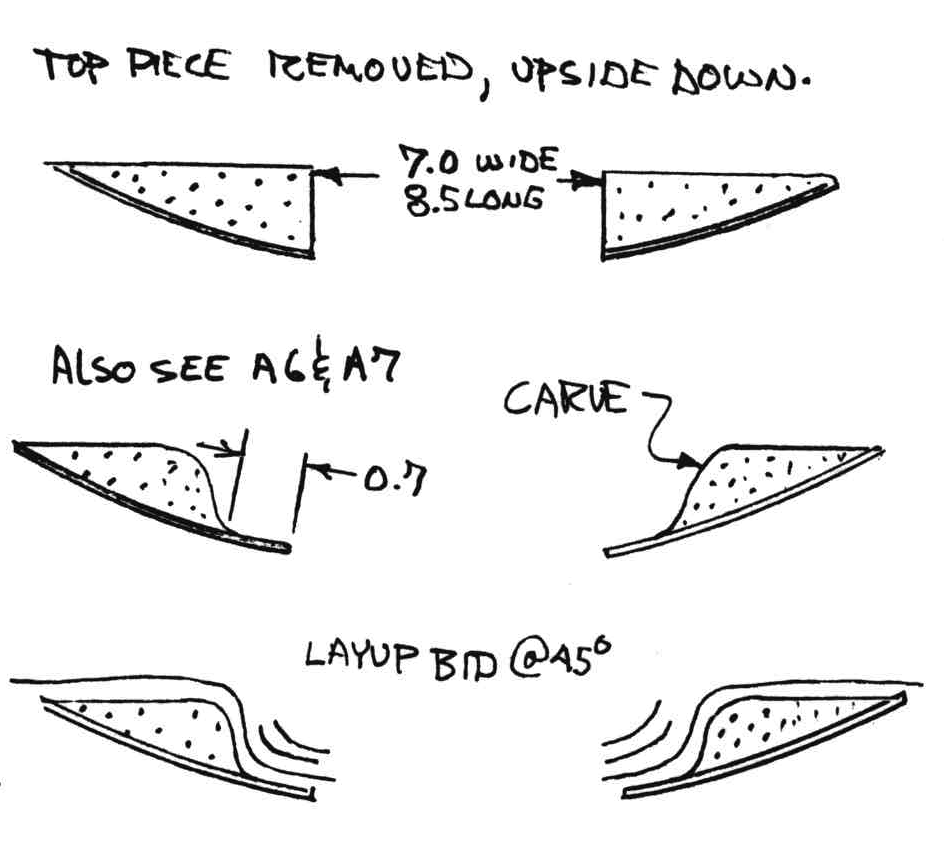 TOP PIECE REMOVED, UPSIDE DOWN.
7.0 WIDE
8.5 LONG
ALSO SEE A6 & A7
CARVE
0.7
LAYUP BID @45°